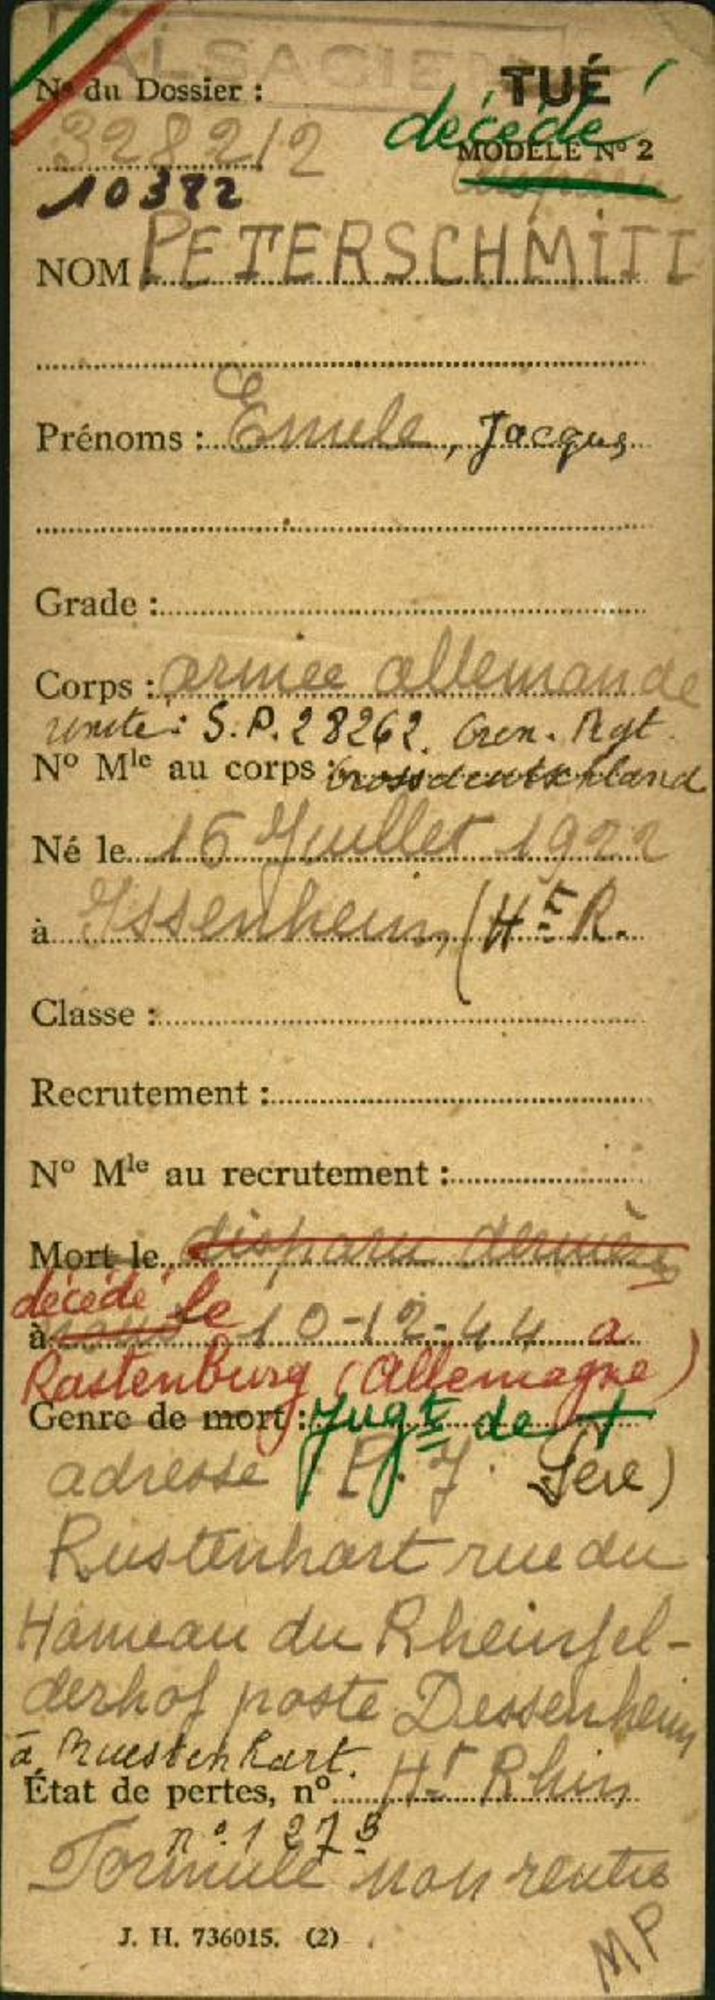 ALSACIEN
TUÉ
N° du Dossier :
décédé
328212
MODÈLE N° 2
10372
NOM PETERSCHMITT
Prénoms : Emile, Jacques
Grade :
Corps : armée allemande
unité : S.P. 28262. Gren. Rgt.
N° Mle au corps : Grossdeutschland
Né le 16 Juillet 1922
à Issenheim (Ht R.
Classe :
Recrutement :
N° Mle au recrutement :
Mort le disparu
décédé le
à 10-12-44 a
Rastenburg (Allemagne)
Genre de mort : Jugt de +
adresse P. J. Père)
Rustenhart rue du
Hameau du Rheinfel-
derhof poste Dessenheim
à Ruestenhart.
État de pertes, n° Ht Rhin
n° 1273
Formule non rentrée
J. H. 736015. (2)
MP